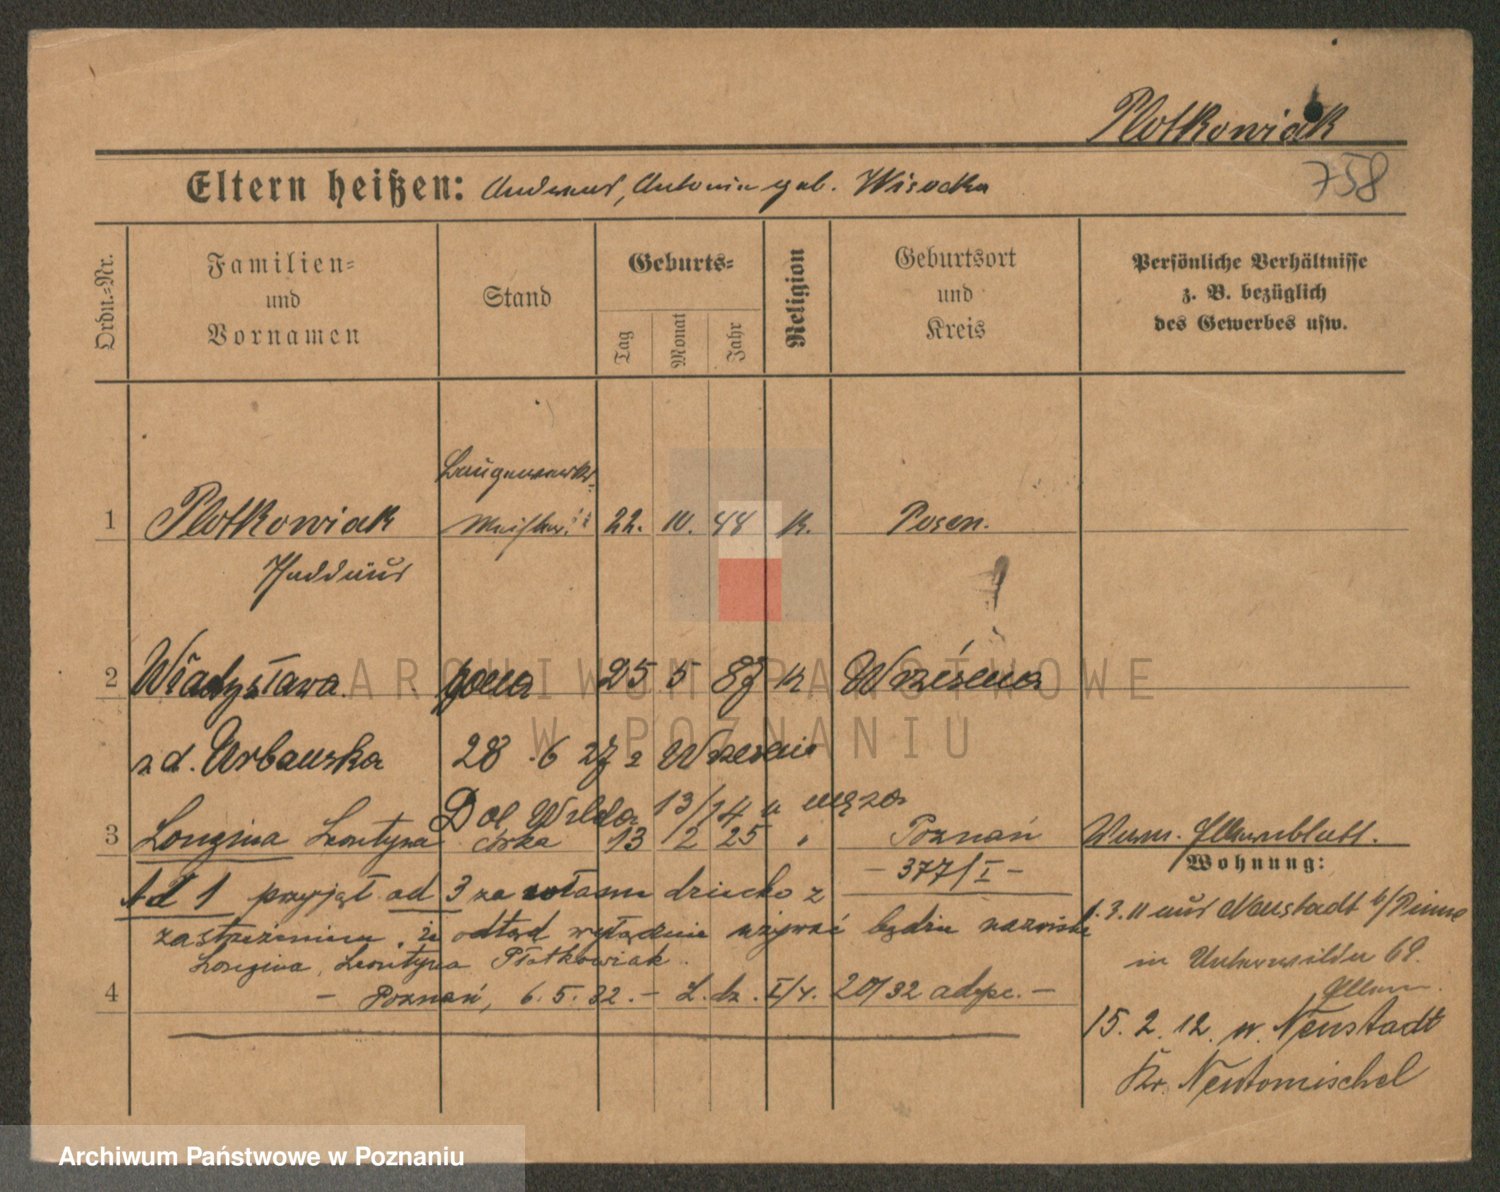 Plotkowiak
758
Eltern heißen: Andreas, Antonie geb. Wisocka
Ordn.-Nr.
Familien-
und
Vornamen
Stand
Geburts-
Tag
Monat
Jahr
Religion
Geburtsort
und
Kreis
Persönliche Verhältnisse
z. B. bezüglich
des Gewerbes usw.
1 Plotkowiak 22. 10. 88 K. Posen.
Thaddäus
2 Władysława żona 25 5 87 K Września
z d. Urbańska 28 .6 27 z Wrześni
Dol Wilda 13/14 u męża
3 Longina Leontyna córka 13 12 25 " Poznań
- 377/I -
Wohnung:
Ad 1 przyjął ad 3 za własne dziecko z
zastrzeżeniem, że odtąd wyłącznie używać będzie nazwiska
Longina, Leontyna Płotkowiak.
4 - Poznań, 6. 5. 32. - L. dz. I/4. 20/32 adopc. -
1.3.11 aus Neustadt b/Pinne
in Unterwilda 69.
Eltern.
15. 2. 12. n. Neustadt
Kr. Neutomischel
ARCHIWUM PAŃSTWOWE
W POZNANIU
Archiwum Państwowe w Poznaniu